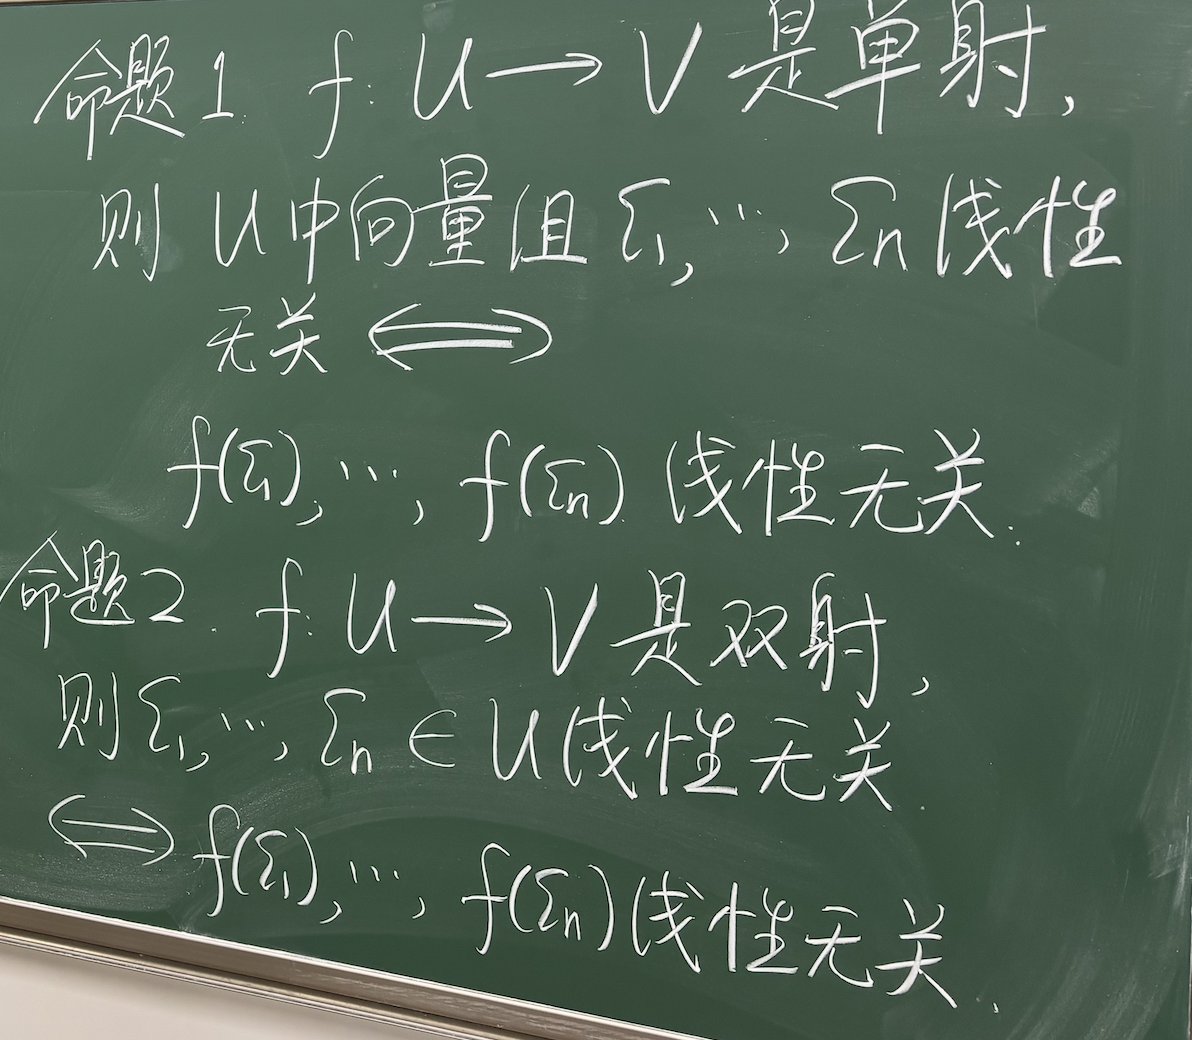 命题1. f: U → V 是单射,
则 U中向量组 ξ₁, ..., ξn 线性
无关 ⟺
f(ξ₁), ..., f(ξn) 线性无关.
命题2. f: U → V 是双射,
则 ξ₁, ..., ξn ∈ U 线性无关.
⟺ f(ξ₁), ..., f(ξn) 线性无关.